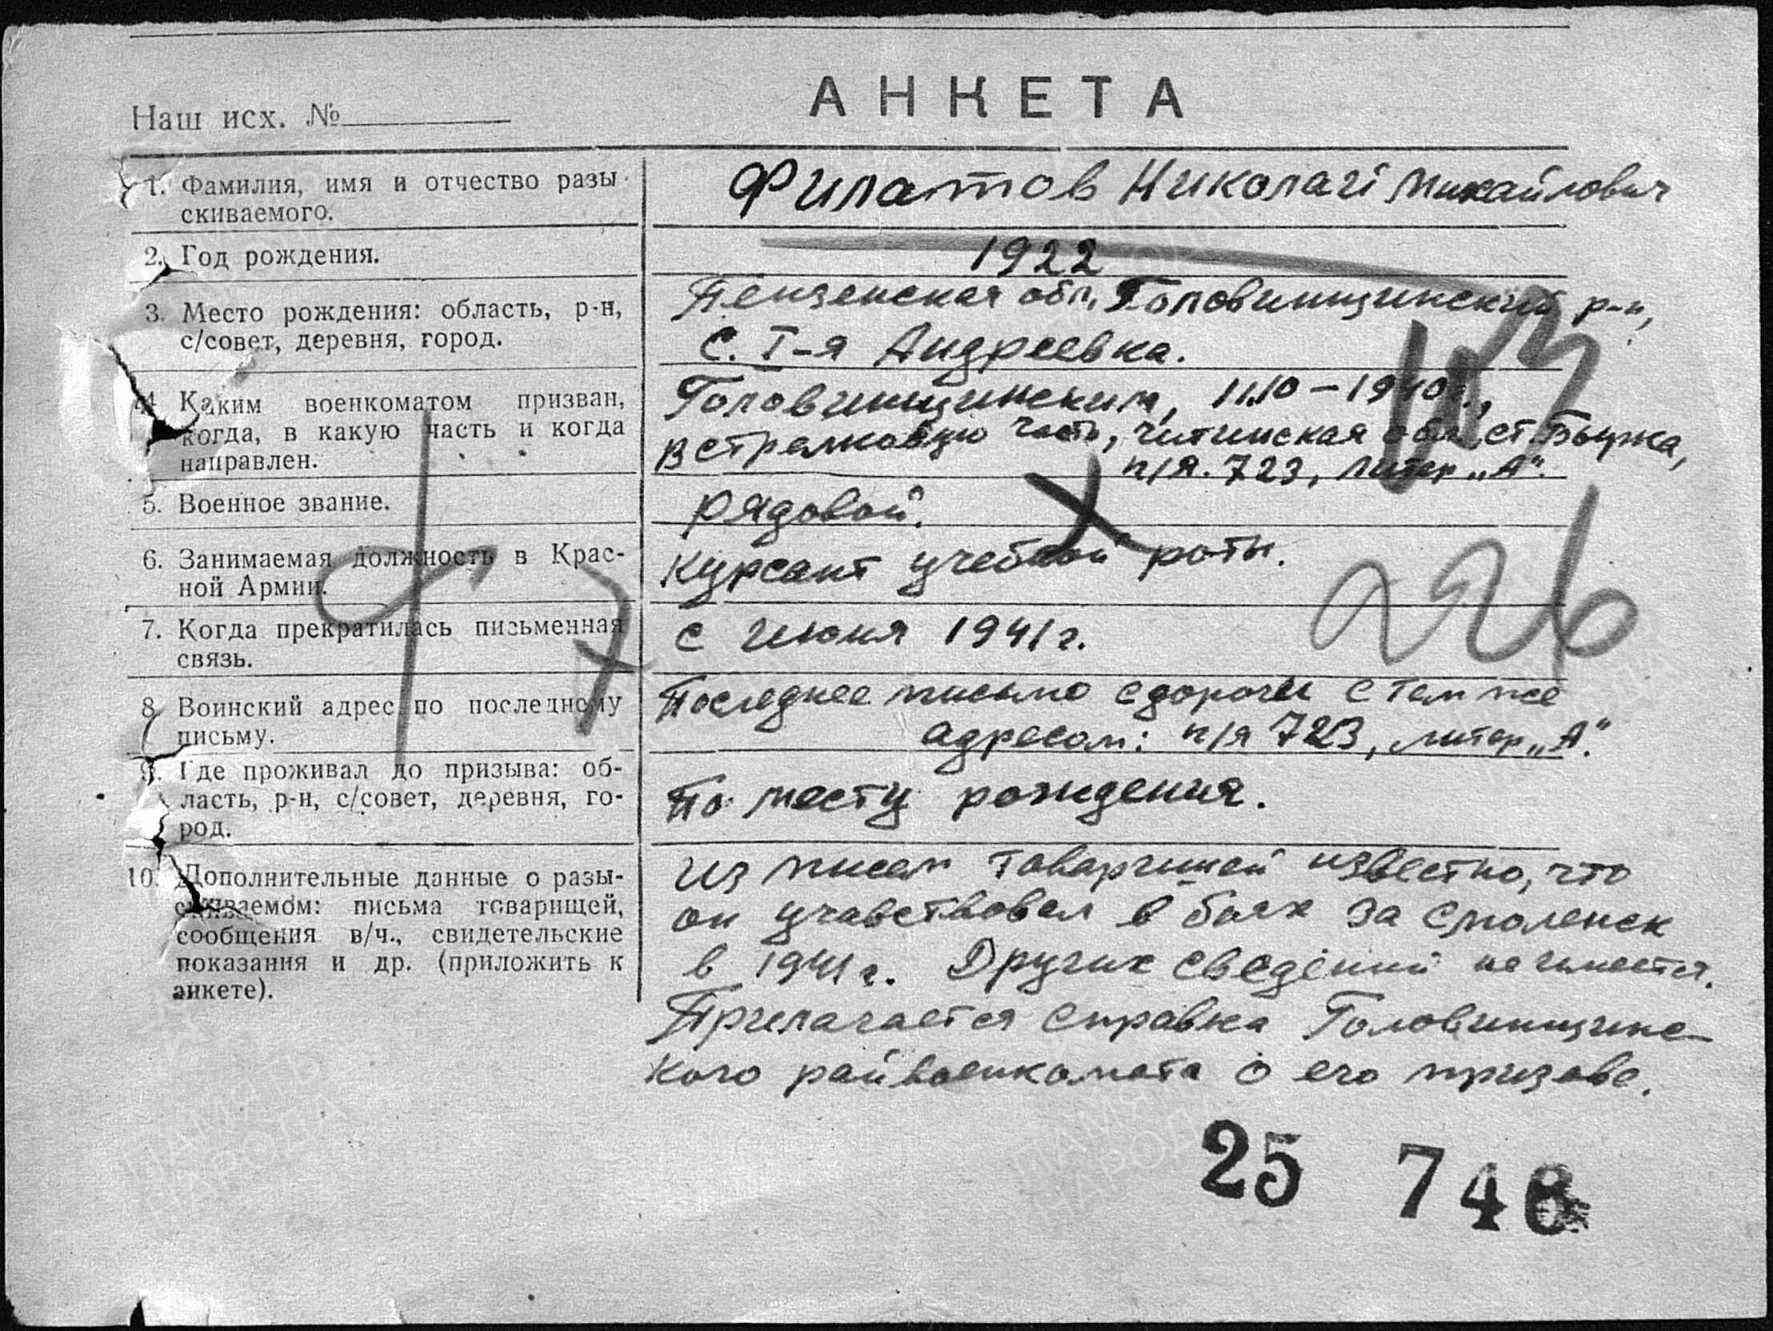 АНКЕТА
Наш исх. №
1. Фамилия, имя и отчество разы-
скиваемого.
Филатов Николай Михайлович
2. Год рождения.
1922
3. Место рождения: область, р-н,
с/совет, деревня, город.
Пензенская обл, Головинщинский р-н,
с. I-я Андреевка.
4. Каким военкоматом призван,
когда, в какую часть и когда
направлен.
Головинщинским, 11.10-1940г.,
в стрелковую часть, Читинская обл, ст. Бырка,
п/я. 723, литер „А".
5. Военное звание.
рядовой.
6. Занимаемая должность в Крас-
ной Армии.
Курсант учебной роты.
7. Когда прекратилась письменная
связь.
с июня 1941г.
8. Воинский адрес по последнему
письму.
Последнее письмо с дороги с тем же
адресом: п/я 723, литер „А".
9. Где проживал до призыва: об-
ласть, р-н, с/совет, деревня, го-
род.
По месту рождения.
10. Дополнительные данные о разы-
скиваемом: письма товарищей,
сообщения в/ч., свидетельские
показания и др. (приложить к
анкете).
Из писем товарищей известно, что
он учавствовал в боях за Смоленск
в 1941г. Других сведений не имеется.
Прилагается справка Головинщинс-
кого райвоенкомата о его призове.
25 748